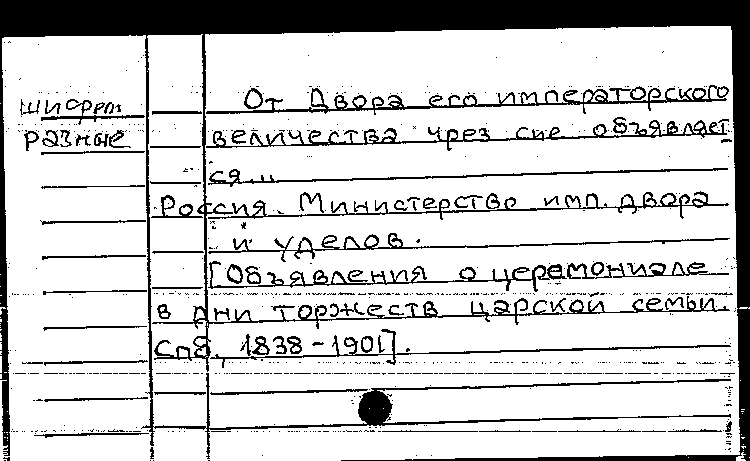 шифры От Двора его императорского
разные величества чрез сие объявляет
ся...
Россия. Министерство имп. двора
и уделов.
[Объявления о церемониале
в дни торжеств царской семьи.
Спб., 1838-1901].